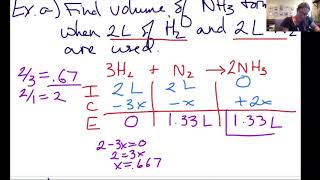 Ex. a) Find volume of NH₃
when 2L of H₂ and 2L
are used.
2/3 = .67
2/1 = 2
3H₂ + N₂ → 2NH₃
I 2L 2L 0
C -3x -x +2x
E 0 1.33L 1.33L
2-3x=0
2=3x
x=.667